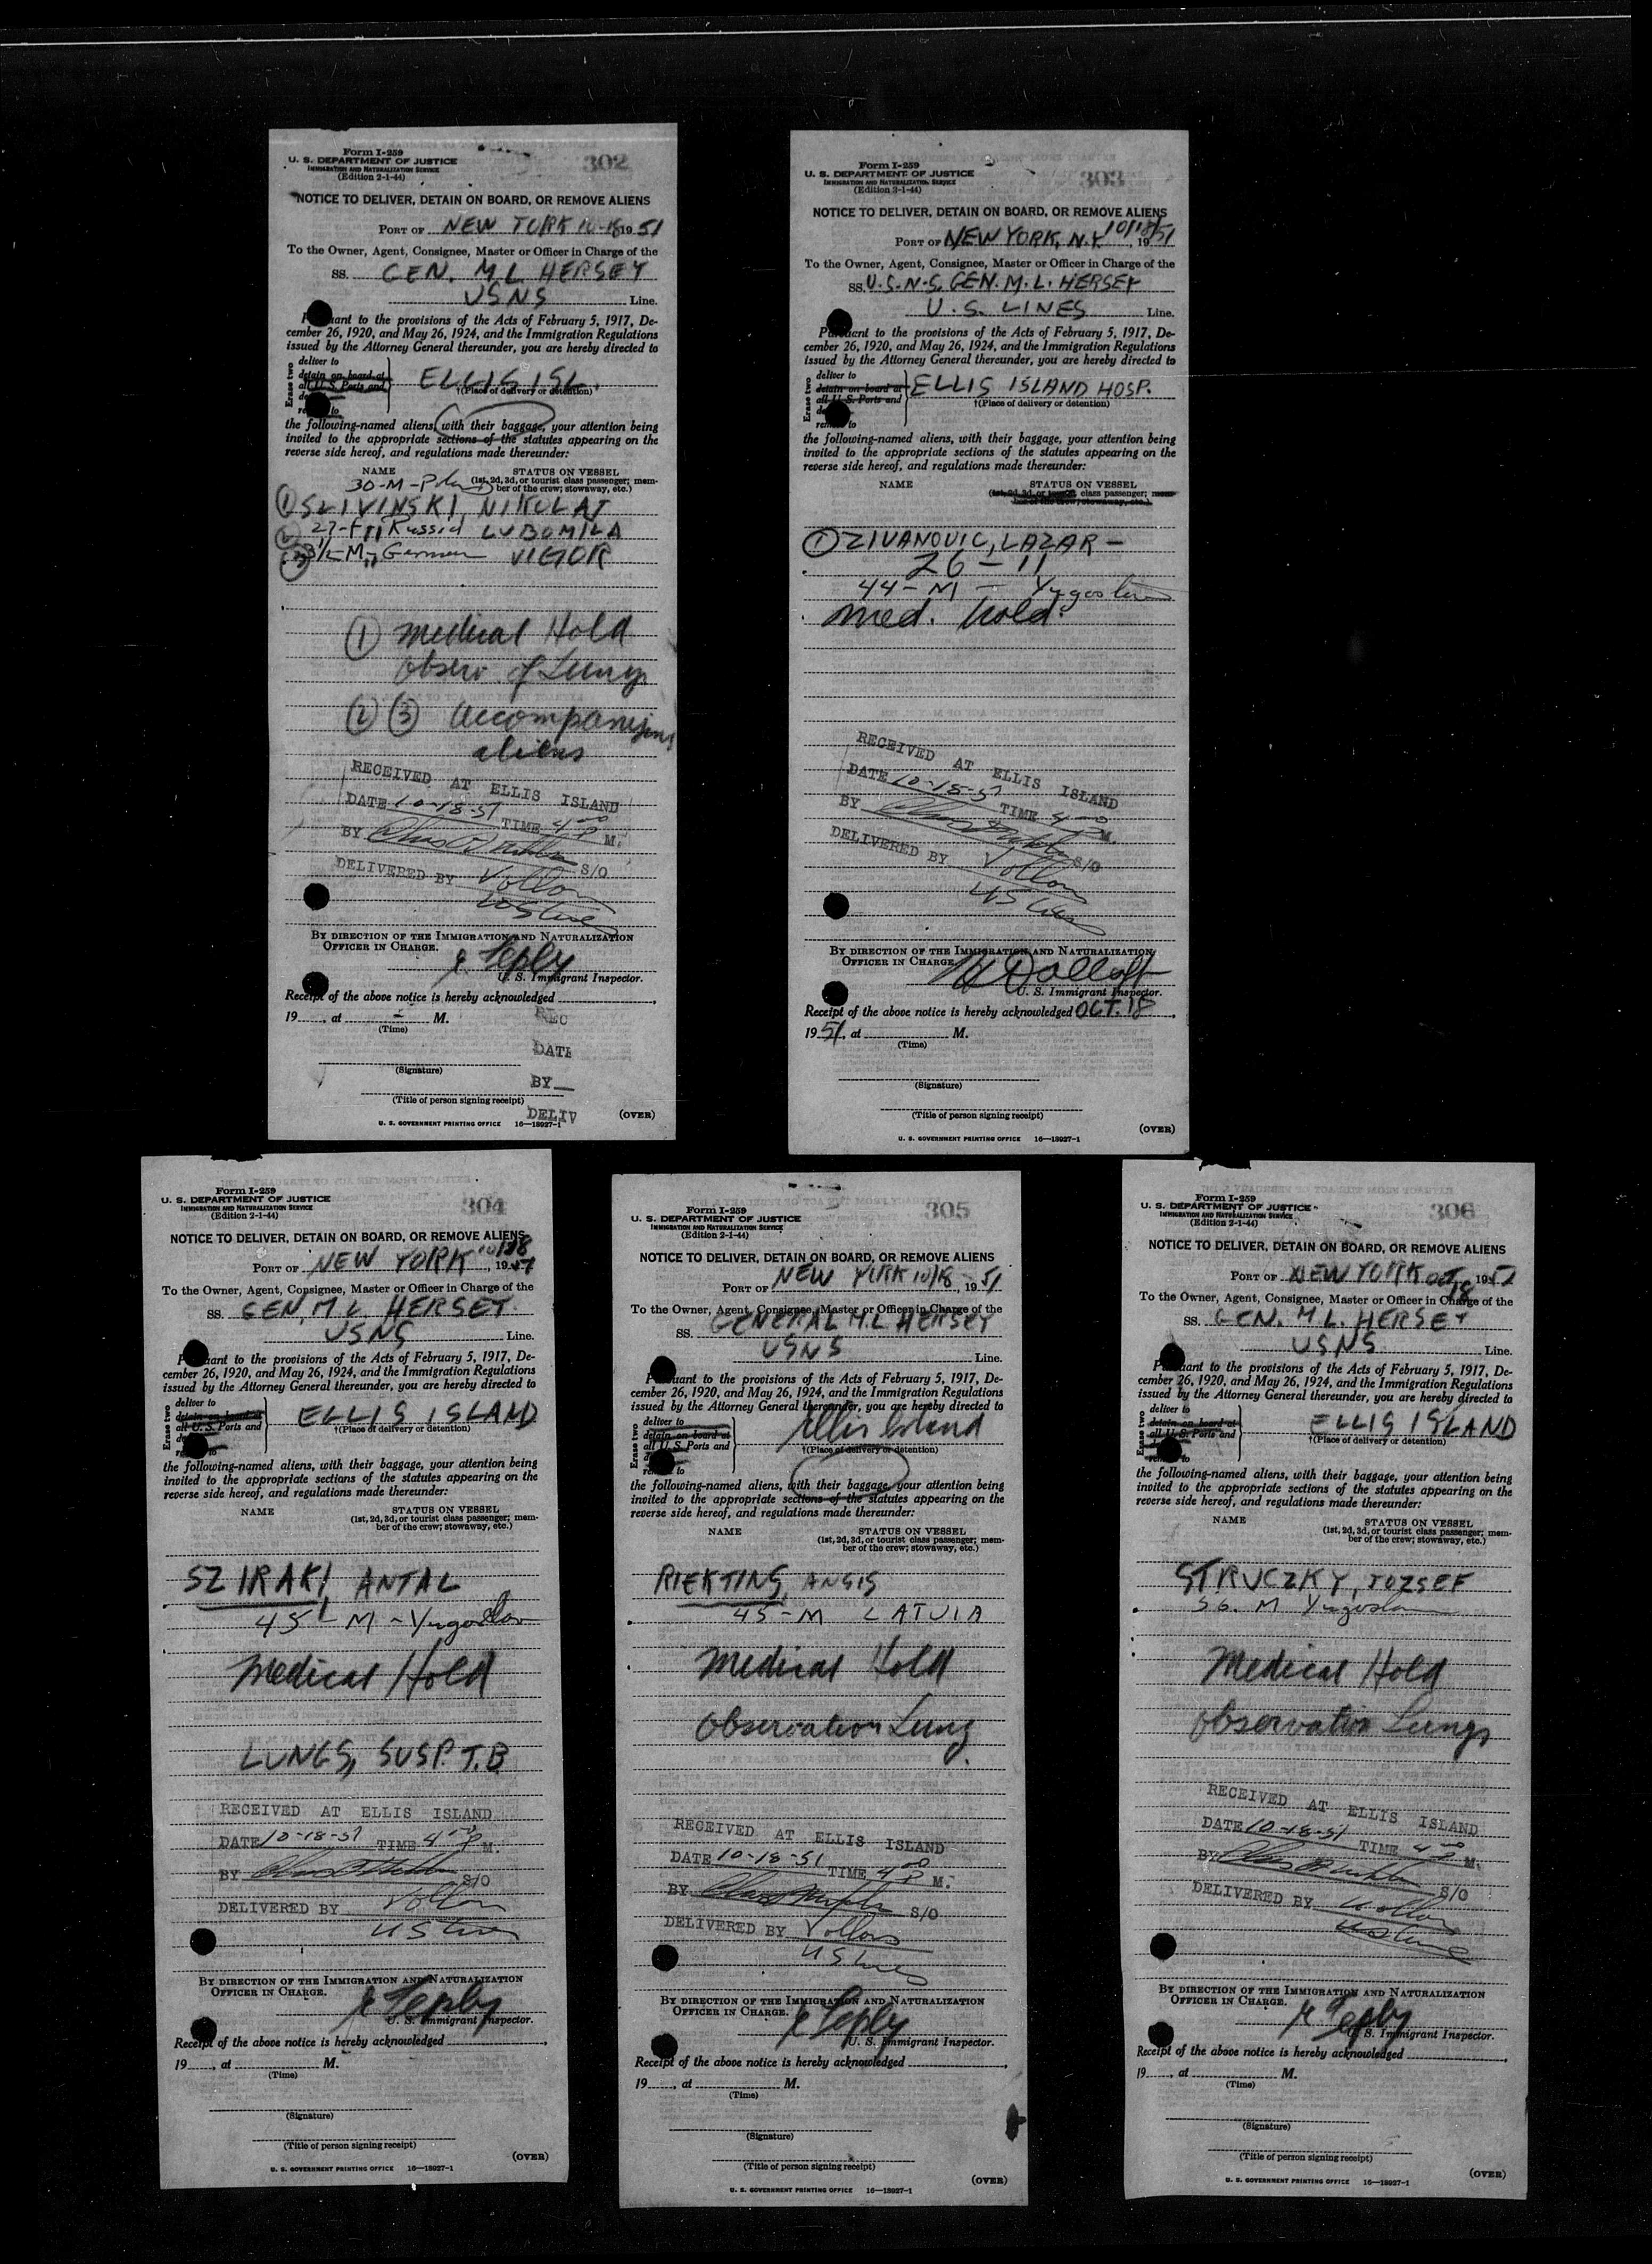 Form I-259
U. S. DEPARTMENT OF JUSTICE
IMMIGRATION AND NATURALIZATION SERVICE
(Edition 2-1-44)
302
NOTICE TO DELIVER, DETAIN ON BOARD, OR REMOVE ALIENS
PORT OF NEW YORK 10-18 1951
To the Owner, Agent, Consignee, Master or Officer in Charge of the
SS. GEN. M L HERSEY
USNS Line.
ant to the provisions of the Acts of February 5, 1917, De-
cember 26, 1920, and May 26, 1924, and the Immigration Regulations
issued by the Attorney General thereunder, you are hereby directed to
Erase two
deliver to
detain on board at
all U. S. Ports and
to
ELLIS ISL.
†(Place of delivery or detention)
the following-named aliens, with their baggage, your attention being
invited to the appropriate sections of the statutes appearing on the
reverse side hereof, and regulations made thereunder:
NAME STATUS ON VESSEL
(1st, 2d, 3d, or tourist class passenger; mem-
ber of the crew; stowaway, etc.)
30-M-Poland
① SLIVINSKI, NIKOLAJ
② 27-F Russia LUBOMILA
③ 3½-M German VIGTOR
① Medical Hold
Observ. of Lungs
② ③ Accompanying
aliens
RECEIVED AT ELLIS ISLAND
DATE 10-18-51 TIME 4 00 P M.
BY S/O
DELIVERED BY Vollon
US Lines
BY DIRECTION OF THE IMMIGRATION AND NATURALIZATION
OFFICER IN CHARGE.
U. S. Immigrant Inspector.
Receipt of the above notice is hereby acknowledged
19 , at M.
(Time)
REC
DATE
(Signature)
BY
(Title of person signing receipt)
DELIV
U. S. GOVERNMENT PRINTING OFFICE 16—18927-1
(OVER)
Form I-259
U. S. DEPARTMENT OF JUSTICE
IMMIGRATION AND NATURALIZATION SERVICE
(Edition 2-1-44)
303
NOTICE TO DELIVER, DETAIN ON BOARD, OR REMOVE ALIENS
PORT OF NEW YORK, N.Y. 10/18/ 1951
To the Owner, Agent, Consignee, Master or Officer in Charge of the
SS. U.S.N.S. GEN. M. L. HERSEY
U.S. LINES Line.
ant to the provisions of the Acts of February 5, 1917, De-
cember 26, 1920, and May 26, 1924, and the Immigration Regulations
issued by the Attorney General thereunder, you are hereby directed to
Erase two
deliver to
detain on board at
all U. S. Ports and
to
ELLIS ISLAND HOSP.
†(Place of delivery or detention)
the following-named aliens, with their baggage, your attention being
invited to the appropriate sections of the statutes appearing on the
reverse side hereof, and regulations made thereunder:
NAME STATUS ON VESSEL
(1st, 2d, 3d, or tourist class passenger; mem-
ber of the crew; stowaway, etc.)
① ZIVANOVIC, LAZAR —
26 - 11
44 - M - Yugoslavia
Med. hold.
RECEIVED AT ELLIS ISLAND
DATE 10-18-51 TIME 4 00 P M.
BY S/O
DELIVERED BY Vollon
US Lines
BY DIRECTION OF THE IMMIGRATION AND NATURALIZATION
OFFICER IN CHARGE
U. S. Immigrant Inspector.
Receipt of the above notice is hereby acknowledged OCT. 18
1951, at M.
(Time)
(Signature)
(Title of person signing receipt)
U. S. GOVERNMENT PRINTING OFFICE 16—18927-1
(OVER)
Form I-259
U. S. DEPARTMENT OF JUSTICE
IMMIGRATION AND NATURALIZATION SERVICE
(Edition 2-1-44)
304
NOTICE TO DELIVER, DETAIN ON BOARD, OR REMOVE ALIENS
PORT OF NEW YORK 10/18 1951
To the Owner, Agent, Consignee, Master or Officer in Charge of the
SS. GEN. M L HERSEY
USNS Line.
ant to the provisions of the Acts of February 5, 1917, De-
cember 26, 1920, and May 26, 1924, and the Immigration Regulations
issued by the Attorney General thereunder, you are hereby directed to
Erase two
deliver to
detain on board at
all U. S. Ports and
ELLIS ISLAND
†(Place of delivery or detention)
the following-named aliens, with their baggage, your attention being
invited to the appropriate sections of the statutes appearing on the
reverse side hereof, and regulations made thereunder:
NAME STATUS ON VESSEL
(1st, 2d, 3d, or tourist class passenger; mem-
ber of the crew; stowaway, etc.)
SZIRAKI, ANTAL
45 - M - Yugoslav
Medical Hold
LUNGS, SUSP. T.B.
RECEIVED AT ELLIS ISLAND
DATE 10-18-51 TIME 4 00 P M.
BY S/O
DELIVERED BY Vollon
US Lines
BY DIRECTION OF THE IMMIGRATION AND NATURALIZATION
OFFICER IN CHARGE.
U. S. Immigrant Inspector.
Receipt of the above notice is hereby acknowledged
19 , at M.
(Time)
(Signature)
(Title of person signing receipt)
(OVER)
U. S. GOVERNMENT PRINTING OFFICE 16—18927-1
Form I-259
U. S. DEPARTMENT OF JUSTICE
IMMIGRATION AND NATURALIZATION SERVICE
(Edition 2-1-44)
305
NOTICE TO DELIVER, DETAIN ON BOARD, OR REMOVE ALIENS
PORT OF NEW YORK 10/18 1951
To the Owner, Agent, Consignee, Master or Officer in Charge of the
SS. GENERAL M.L HERSEY
USNS Line.
ant to the provisions of the Acts of February 5, 1917, De-
cember 26, 1920, and May 26, 1924, and the Immigration Regulations
issued by the Attorney General thereunder, you are hereby directed to
Erase two
deliver to
detain on board at
all U. S. Ports and
to
Ellis Island
†(Place of delivery or detention)
the following-named aliens, with their baggage, your attention being
invited to the appropriate sections of the statutes appearing on the
reverse side hereof, and regulations made thereunder:
NAME STATUS ON VESSEL
(1st, 2d, 3d, or tourist class passenger; mem-
ber of the crew; stowaway, etc.)
RIEKTINS, ANSIS
45 - M LATVIA
Medical Hold
Observation Lung
RECEIVED AT ELLIS ISLAND
DATE 10-18-51 TIME 4 00 P M.
BY S/O
DELIVERED BY Vollon
US Lines
BY DIRECTION OF THE IMMIGRATION AND NATURALIZATION
OFFICER IN CHARGE.
U. S. Immigrant Inspector.
Receipt of the above notice is hereby acknowledged
19 , at M.
(Time)
(Signature)
(Title of person signing receipt)
(OVER)
U. S. GOVERNMENT PRINTING OFFICE 16—18927-1
Form I-259
U. S. DEPARTMENT OF JUSTICE
IMMIGRATION AND NATURALIZATION SERVICE
(Edition 2-1-44)
306
NOTICE TO DELIVER, DETAIN ON BOARD, OR REMOVE ALIENS
PORT OF NEW YORK OCT 18 1951
To the Owner, Agent, Consignee, Master or Officer in Charge of the
SS. GEN. M L. HERSEY
USNS Line.
ant to the provisions of the Acts of February 5, 1917, De-
cember 26, 1920, and May 26, 1924, and the Immigration Regulations
issued by the Attorney General thereunder, you are hereby directed to
Erase two
deliver to
detain on board at
all U. S. Ports and
to
ELLIS ISLAND
†(Place of delivery or detention)
the following-named aliens, with their baggage, your attention being
invited to the appropriate sections of the statutes appearing on the
reverse side hereof, and regulations made thereunder:
NAME STATUS ON VESSEL
(1st, 2d, 3d, or tourist class passenger; mem-
ber of the crew; stowaway, etc.)
STRUCZKY, JOZSEF
36. M Yugoslav
Medical Hold
Observation Lungs
RECEIVED AT ELLIS ISLAND
DATE 10-18-51 TIME 4 00 P M.
BY S/O
DELIVERED BY Vollon
US Lines
BY DIRECTION OF THE IMMIGRATION AND NATURALIZATION
OFFICER IN CHARGE.
U. S. Immigrant Inspector.
Receipt of the above notice is hereby acknowledged
19 , at M.
(Time)
(Signature)
(Title of person signing receipt)
(OVER)
U. S. GOVERNMENT PRINTING OFFICE 16—18927-1